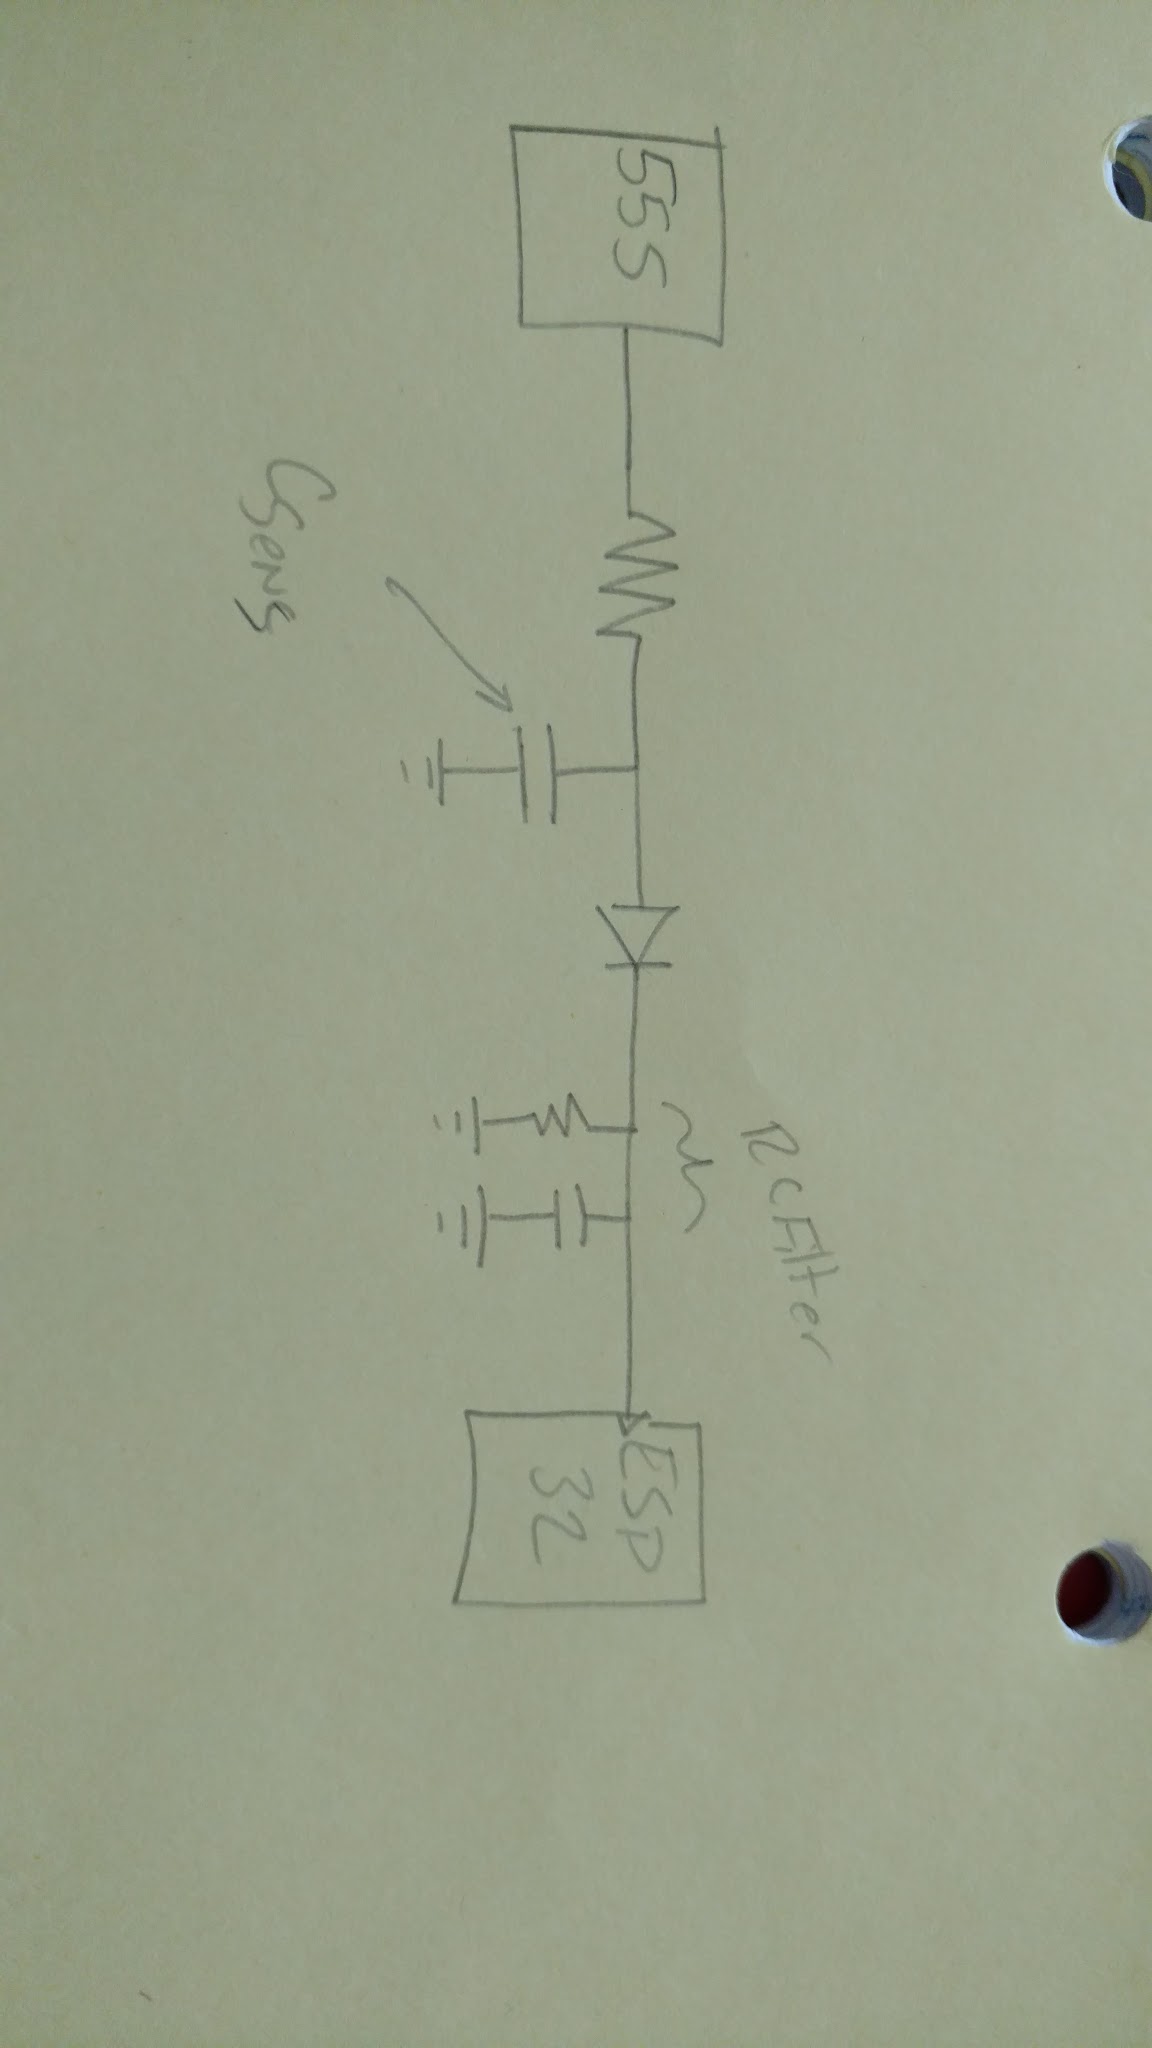 555
Csens
RC Filter
ESP
32